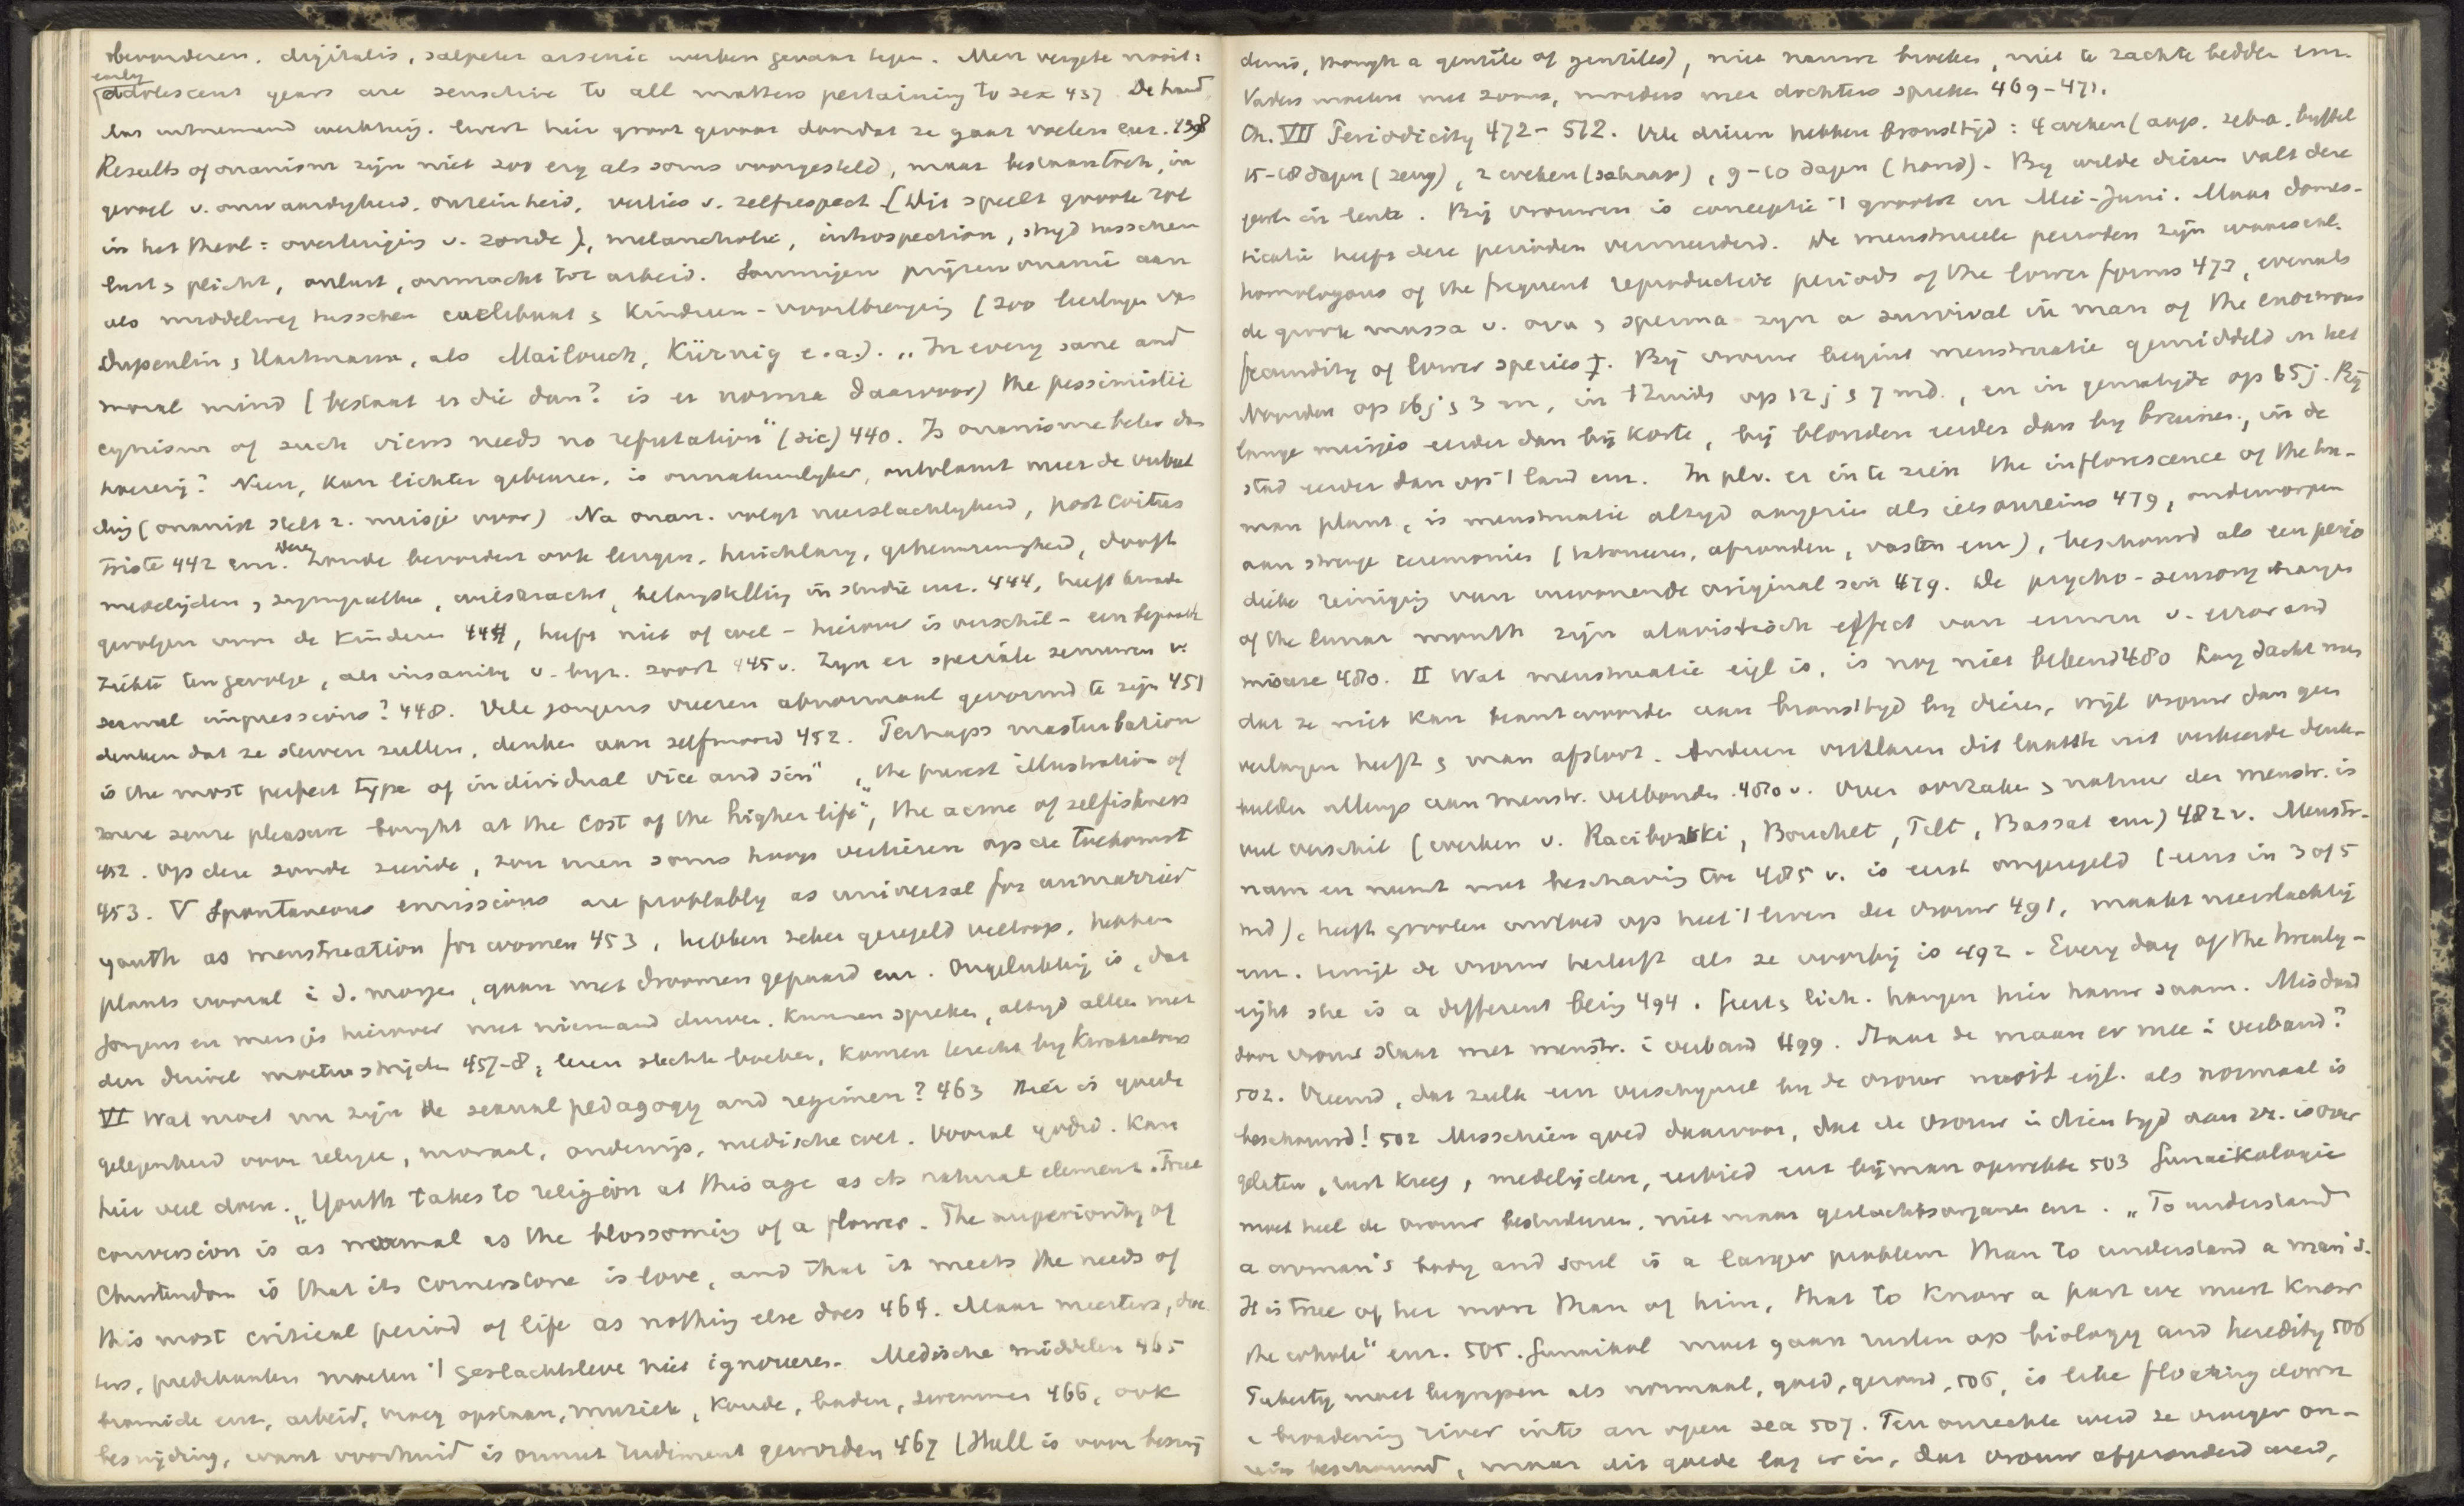 bevorderen. digitalis, salpeter arsenic werken gevaar tegen. Men vergete nooit:
early
adolescent years are sensitive to all matters pertaining to sex 437. De hand
Results of onanism zijn niet zoo erg als soms voorgesteld, maar bestaan toch, in
gevoel v. onwaardigheid, onreinheid, verlies v. zelfrespect [dit speelt groote rol
in het theol: overtuiging v. zonde), melancholie, introspection, strijd tusschen
lust & plicht, onlust, onmacht tot arbeid. Sommigen prijzen onanie aan
als middelweg tusschen coelibaat & Kinderen-voortbrenging (zoo
moral mind (bestaat er die dan? is er norma daarvoor) the pessimistic
cynism of such views needs no refutation" (sic) 440. Is onanisme beter dan
hoererij? Neen, Kan lichter gebeuren, is onnatuurlyker, ontvlamt meer de verbeel
ding (onanist stelt z. meisje voor) Na onan. volgt neerslachtigheid, post coitus
triste 442 enz. Deze Zonde bevordert ook leugen, huichelary, geheimzinnigheid, dooft
medelijden, sympathie, wilskracht, belangstelling in studie enz. 444, heeft kwade
gevolgen voor de Kinderen 444, heeft niet of wel - hierover is verschil - een bepaalde
ziekte ten gevolge, als insanity v. byz. soort 445 v. Zyn er speciale zenuwen v.
sexual impressions? 448. Vele jongens vreezen abnormaal gevormd te zijn 451
denken dat ze sterven zullen, denken aan zelfmoord 452. Perhaps masturbation
is the most perfect type of individual vice and sin", "the purest illustration of
mere sense pleasure bought at the cost of the higher life", the acme of selfishness
452. Op deze zonde ziende, zou men soms hoop verliezen op de toekomst
453. V Spontaneous emissions are probably as universal for unmarried
youth as menstruation for women 453, hebben zeker geregeld verloop, hebben
plaats vooral i. d. morgen, gaan met droomen gepaard enz. Ongelukkig is, dat
jongens en meisjes hierover met niemand durven, Kunnen spreken, altyd alleen met
den duivel moeten strijden 457-8, lezen slechte boeken, Komen terecht by Kwakzalvers
VI Wat moet nu zijn de sexual pedagogy and regimen? 463 Hier is goede
gelegenheid voor religie, moraal, onderwijs, medische wet. Vooral godsd. Kan
hier veel doen. "Youth takes to religion at this age as its natural element. True
conversion is as normal as the blossoming of a flower. The superiority of
Christendom is that its cornerstone is love, and that it meets the needs of
this most critical period of life as nothing else does 464. Maar meesters, doc
tors, predikanten moeten 't geslachtsleve niet ignoreeren. Medische middelen 465
bromide enz, arbeid, vroeg opstaan, muziek, koude, baden, zwemmen 466, ook
besnijding, want voorhuid is onnut rudiment geworden 467 (Hall is voor besnij
denis, though a gentile of gentiles), niet nauwe broeken, niet te zachte bedden enz.
Vaders moeten met zoons, moeders met dochters spreken 469-471.
Ch. VII Periodicity 472-512. Vele dieren hebben bronstijd: 4 weken (aap, zebra, buffel
15-18 dagen (zeug), 2 weken (schaap), 9-10 dagen (hond). By wilde dieren valt deze
in lente. Bij vrouwen is conceptie 't grootst in Mei-Juni. Maar domes-
ticatie heeft deze perioden vermeerderd. De menstrueele perioden zijn waarschl.
homologous of the frequent reproductive periods of the lower forms 473, evenals
de groote massa v. ova & sperma zyn a survival in man of the enormous
fecundity of lower species. Bij vrouw begint menstruatie gemiddeld in het
Noorden op 16 j & 3 m, in 't Zuids op 12 j & 7 md., en in gematigde op 15 j. By
lange meisjes eerder dan bij korte, bij blonden eerder dan by bruinen, in de
stad eerder dan op 't land enz. In plv. er in te zien the inflorescence of the hu-
man plant, is menstruatie altyd aangezien als iets onreins 479, onderworpen
aan strenge ceremonies (afzonden, vasten enz), beschouwd als een perio
dieke reiniging van inwonende original sin 479. De psycho-sensory changes
of the lunar month zijn atavistisch effect van eeuwen v. error and
misuse 480. II Wat menstruatie eigl is, is nog niet bekend 480 Lang dacht men
dat ze niet kan beantwoorden aan bronstijd by dieren, wijl vrouw dan geen
verlangen heeft & man afstoot. Anderen verklaren dit laatste uit verkeerde denk-
beelden allengs aan menstr. verbonden 480 v. Over oorzaken & natuur der menstr. is
veel verschil (werken v. Raciborski, Bouchet, Tilt, Bassat enz) 482 v. Menstr.
nam en neemt met beschaving toe 485 v. is eerst ongeregeld (eens in 3 of 5
md), heeft grooten invloed op heel 't leven der vrouw 491, maakt neerslachtig
enz. terwijl de vrouw herleeft als ze voorbij is 492. Every day of the twenty-
eight she is a different being 494. Geest & lich. hangen hier nauw saam. Misdaad
door vrouw staat met menstr. i verband 499. Staat de maan er mee i verband?
502. Vreemd, dat zulk een verschijnsel by de vrouw nooit eigl. als normaal is
beschouwd! 502 Misschien goed daarvoor, dat de vrouw in dien tyd
gelaten, rust kreeg, medelijden, eerbied enz bij man opwekte 503 Gunaikologie
moet heel de vrouw bestudeeren, niet maar geslachtsorganen enz. "To understand
a woman's body and soul is a larger problem than to understand a man's.
It is true of her more than of him, that to know a part we must know
the whole" enz. 505. Gunaikol moet gaan rusten op biology and heredity 506
Puberty moet begrepen als normaal, goed, gezond, 506, is like floating down
a broadening river into an open sea 507. Ten onrechte werd ze vroeger on-
rein beschouwd, maar dit goede lag er in, dat vrouw afgezonderd werd,